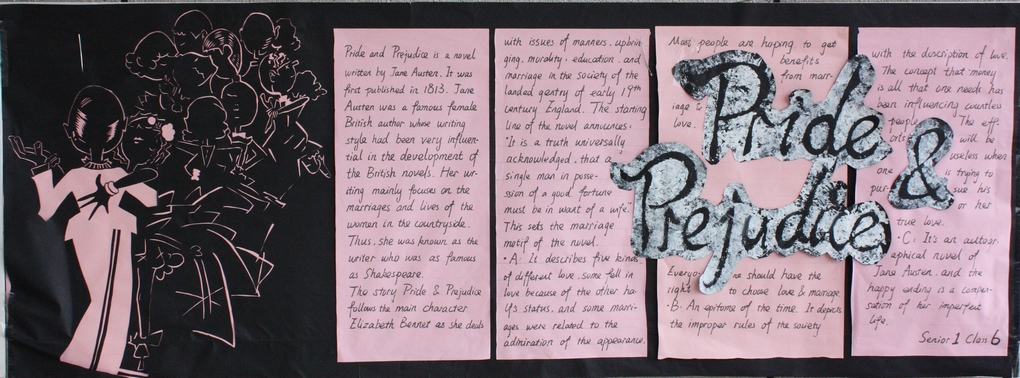 Pride and Prejudice is a novel
written by Jane Austen. It was
first published in 1813. Jane
Austen was a famous female
British author whose writing
style had been very influen-
tial in the development of
the British novels. Her wr-
iting mainly focuses on the
marriages and lives of the
women in the countryside.
Thus, she was known as the
writer who was as famous
as Shakespeare.
The story Pride & Prejudice
follows the main character
Elizabeth Bennet as she deals
with issues of manners, upbrin
ging, morality, education, and
marriage in the society of the
landed gentry of early 19th
century England. The starting
line of the novel announces:
"It is a truth universally
acknowledged, that a
single man in posse-
ssion of a good fortune
must be in want of a wife."
This sets the marriage
motif of the novel.
·A: It describes five kinds
of different love. some fell in
love because of the other ha-
lf's status, and some marri-
ages were related to the
admiration of the appearance.
Most people are hoping to get
benefits
from marr-
iage
love.
Pride &
Prejudice
Everyo- ne should have the
right to choose love & marriage
·B: An epitome of the time. It depicts
the improper rules of the society
with the description of love.
The concept that money
is all that one needs has
been influencing countless
people. The eff-
orts will be
useless when
one is trying to
pur- sue his
or her
true love.
·C: It's an autobi-
ographical novel of
Jane Austen, and the
happy ending is a compen-
sation of her imperfect
life.
Senior 1 Class 6